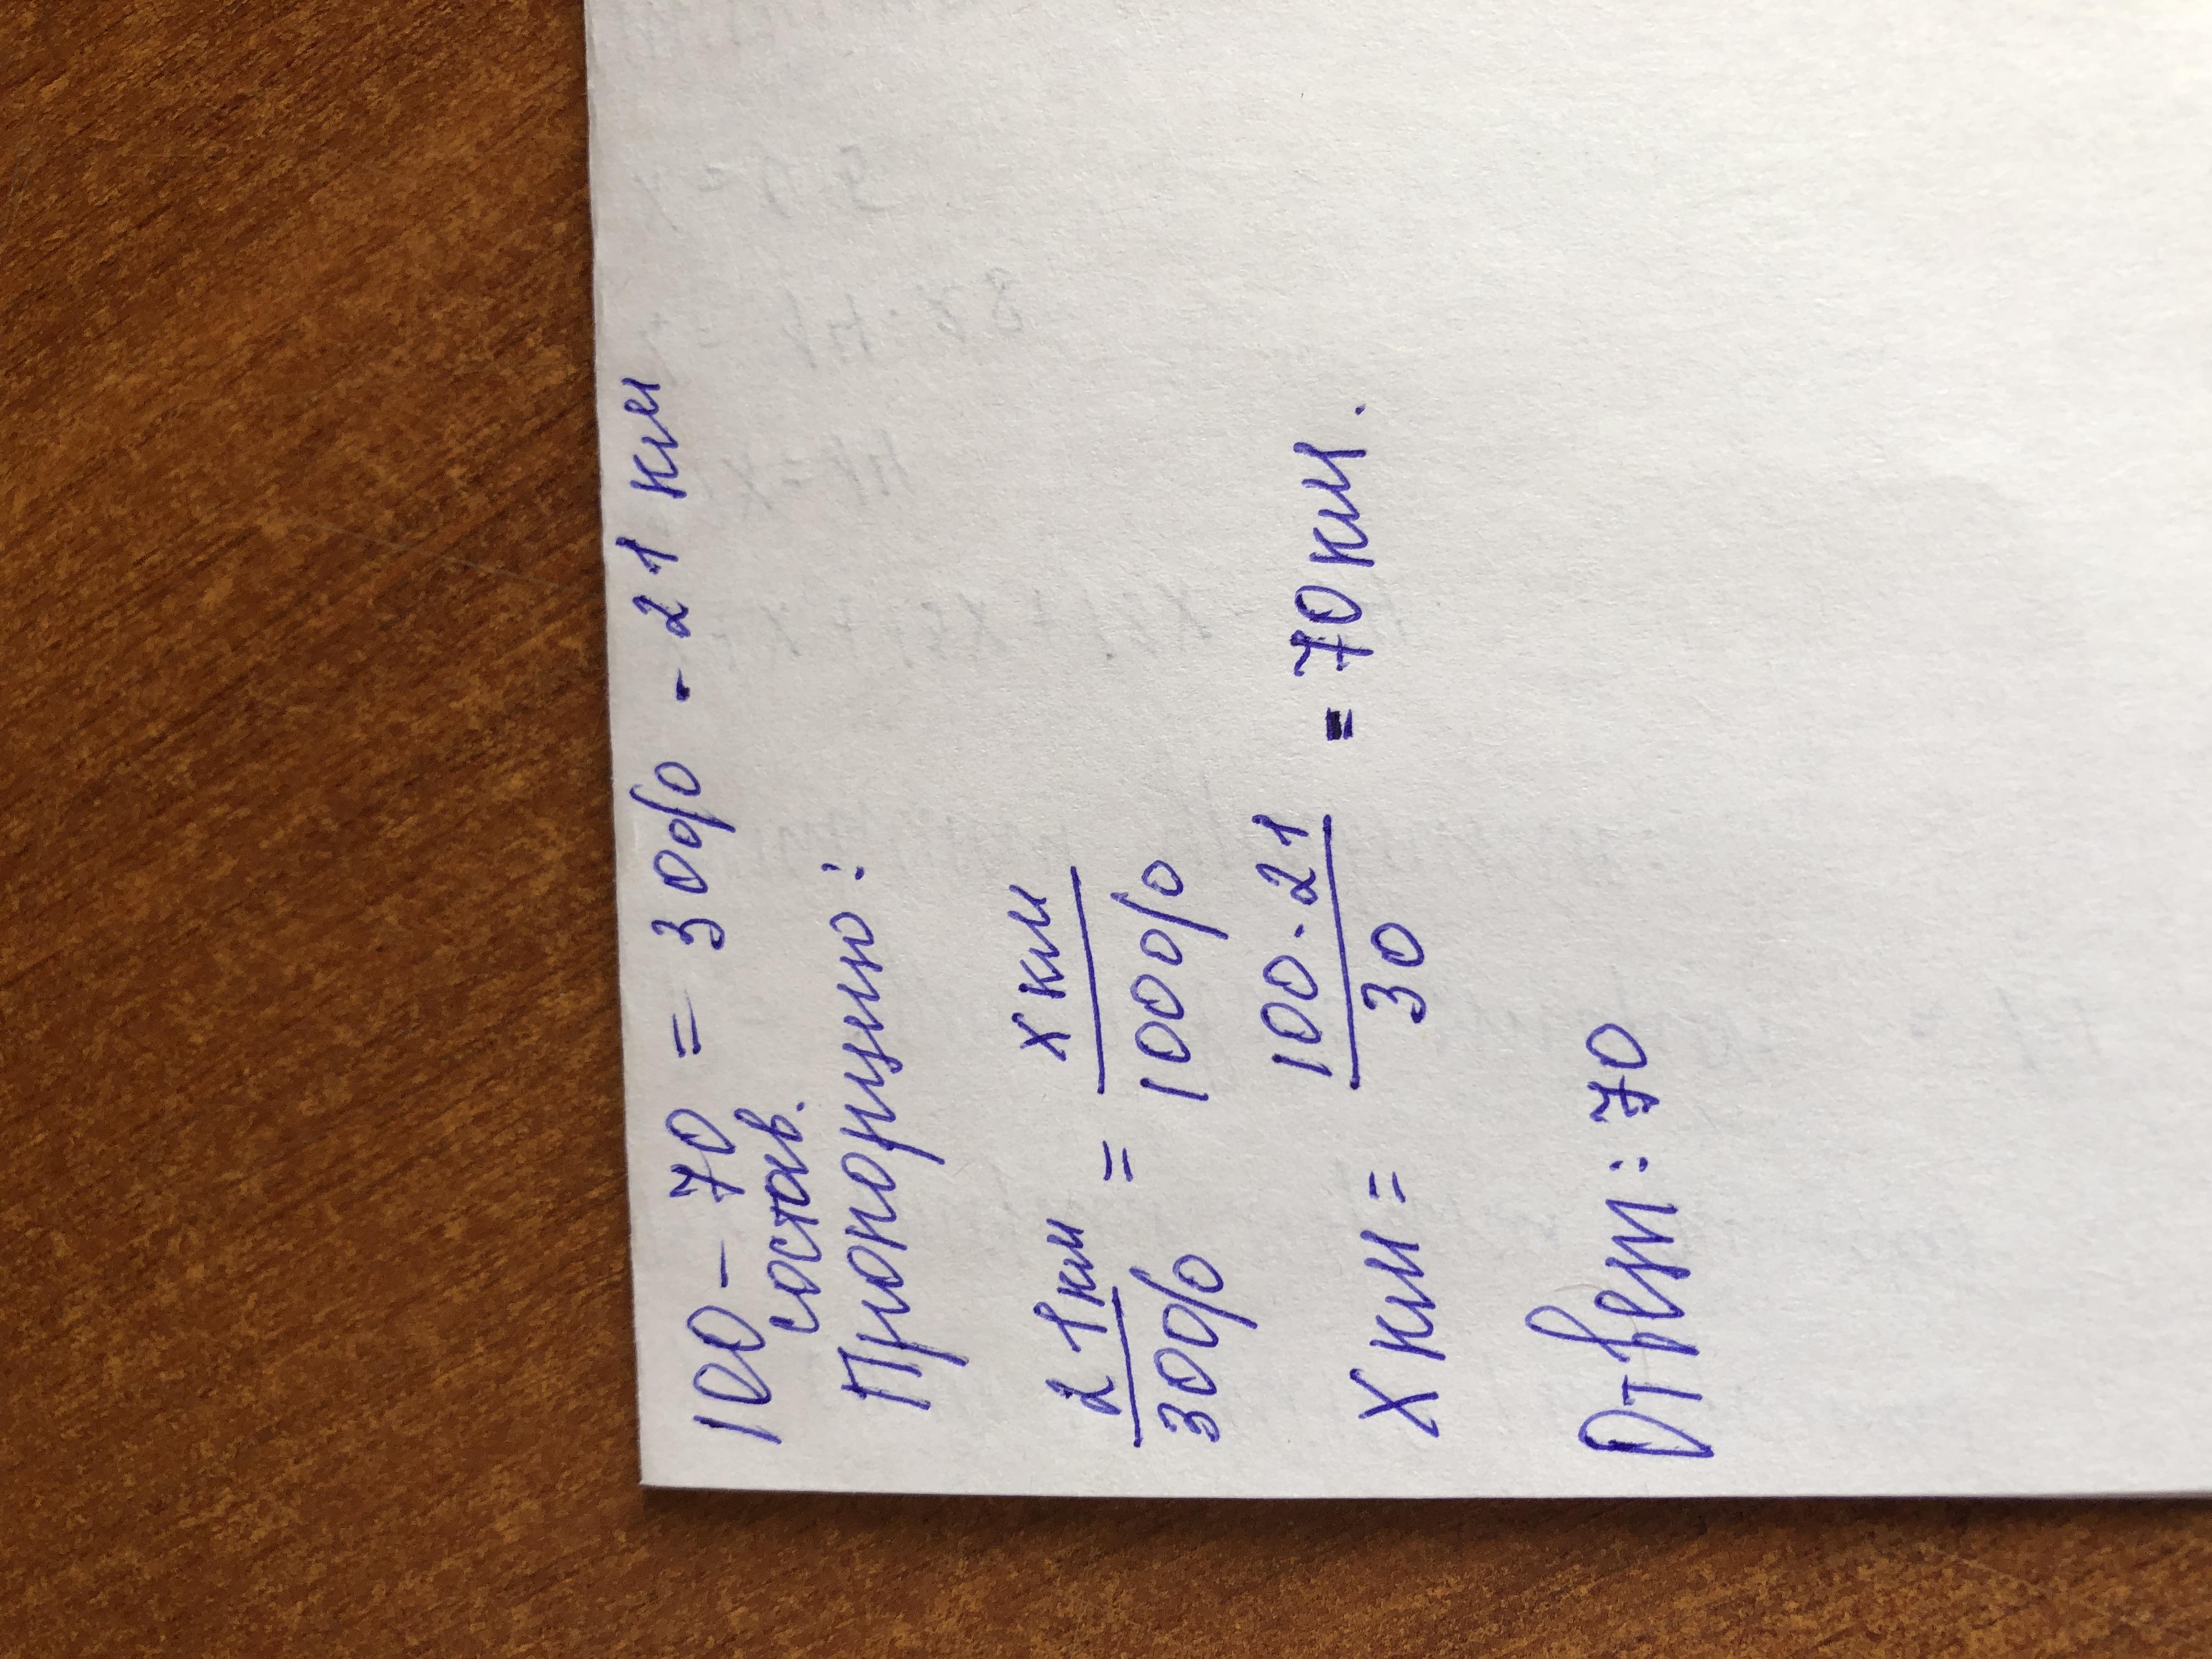 100 - 70 = 30% - 21 км
состав.
Пропорцию:
21км/30% = xкм/100%
Xкм = 100·21/30 = 70км.
Ответ: 70